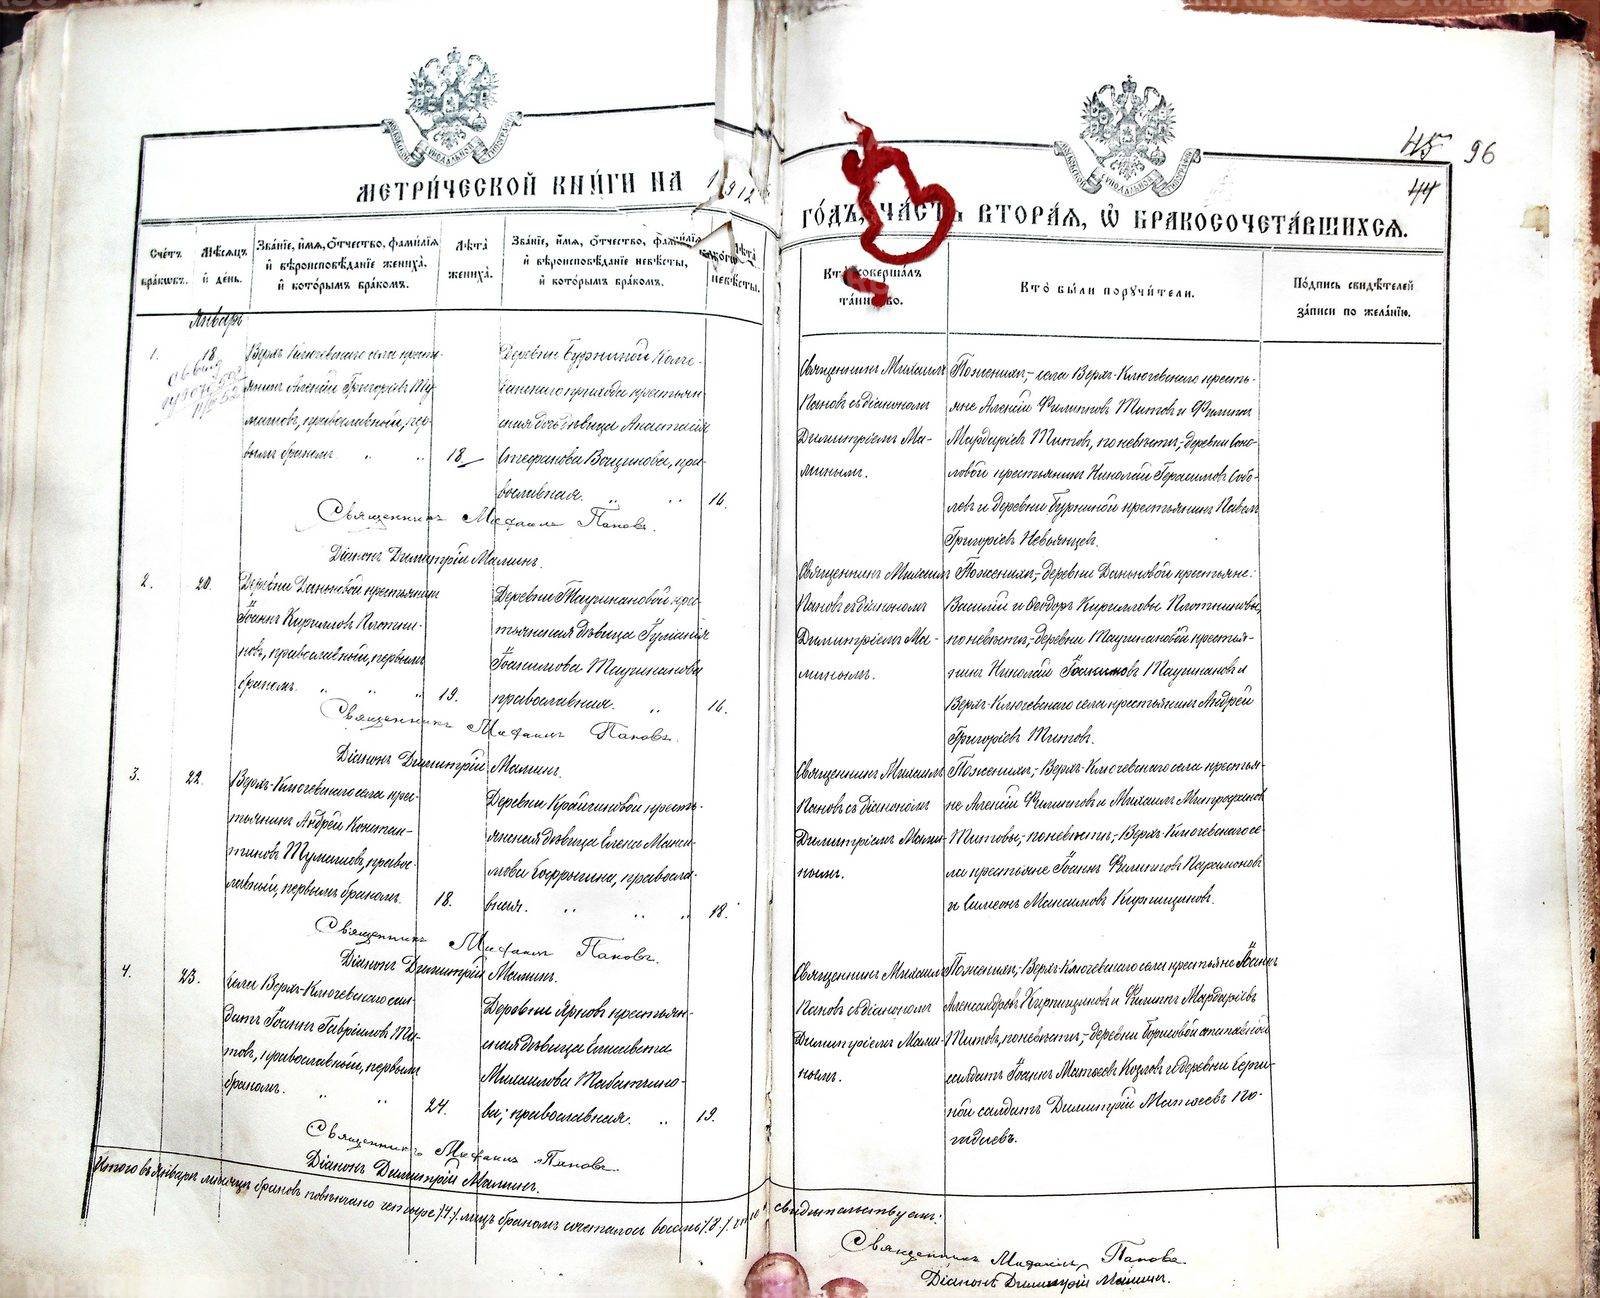 МЕТРИ́ЧЕСКОЙ КНИ́ГИ НА 1912
ГО́ДЪ, ЧА́СТЬ ВТОРА́Я, Ѡ҆ БРАКОСОЧЕТА́ВШИХСЯ.
45 96
44
Сче́тъ бра́кѡвъ.
Мѣ́сяцъ и҆ де́нь.
Зва́нїе, и҆́мя, ѻ҆́тчество, фами́лїя и҆ вѣроисповѣ́данїе жениха̀, и҆ кото́рымъ бра́комъ.
Лѣ́та жениха̀.
Зва́нїе, и҆́мя, ѻ҆́тчество, фами́лїя и҆ вѣроисповѣ́данїе невѣ́сты, и҆ кото́рымъ бра́комъ.
Лѣ́та невѣ́сты.
Кто̀ соверша́лъ та́инство.
Кто̀ бы́ли порꙋчи́тели.
По́дпись свидѣ́телей за́писи по жела́нїю.
Январь
1.
18
Верхъ-Ключевскаго села кресть-
янинъ Алексій Григоріевъ
православный, пер-
вымъ бракомъ.
18
Деревни Буриной
прихода крестьян-
ская дѣвица Анастасія
Стефанова пра-
вославная.
16.
Священникъ Михаилъ
Пановъ съ діакономъ
Димитріемъ Ма-
линымъ.
По женихѣ,- села Верхъ-Ключевскаго кресть-
яне Алексій Филиповъ Титовъ и Филипъ
Мардаріевъ Титовъ, по невѣстѣ,- деревни Соко-
ловой крестьянинъ Николай Герасимовъ Собо-
левъ и деревни Буриной крестьянинъ Павелъ
Григоріевъ Невьянцевъ.
Священникъ Михаилъ Пановъ.
Діаконъ Димитрій Малинъ.
2.
20.
Деревни Даньковой крестьянинъ
Іоаннъ Кирилловъ Плотни-
ковъ, православный, первымъ
бракомъ.
19.
Деревни крес-
тьянская дѣвица Іуліанія
Іоакимова
православная.
16.
Священникъ Михаилъ
Пановъ съ діакономъ
Димитріемъ Ма-
линымъ.
По женихѣ,- деревни Даньковой крестьяне:
Василій и Ѳеодоръ Кирилловы Плотниковы,
по невѣстѣ,- деревни крестья-
нинъ Николай Іоакимовъ и
Верхъ-Ключевскаго села крестьянинъ Андрей
Григоріевъ Титовъ.
Священникъ Михаилъ Пановъ.
Діаконъ Димитрій Малинъ.
3.
22.
Верхъ-Ключевскаго села крес-
тьянинъ Андрей Констан-
тиновъ правос-
лавный, первымъ бракомъ.
18.
Деревни кресть-
янская дѣвица Елена Макси-
мова правосла-
вная.
18.
Священникъ Михаилъ
Пановъ съ діакономъ
Димитріемъ Мали-
нымъ.
По женихѣ,- Верхъ-Ключевскаго села крестья-
не Алексій Филиповъ и Михаилъ Митрофановъ
Титовы,- по невѣстѣ,- Верхъ-Ключевскаго се-
ла крестьяне Іоаннъ Филиповъ Парамоновъ
и Симеонъ Максимовъ Кирпищиковъ.
Священникъ Михаилъ Пановъ.
Діаконъ Димитрій Малинъ.
4.
25.
Села Верхъ-Ключевскаго сол-
датъ Іоаннъ Гавріиловъ Ти-
товъ, православный, первымъ
бракомъ.
24.
Деревни крестьян-
ская дѣвица Елисавета
Михаилова
православная.
19.
Священникъ Михаилъ
Пановъ съ діакономъ
Димитріемъ Мали-
нымъ.
По женихѣ,- Верхъ-Ключевскаго села крестьяне Іоаннъ
Александровъ Кирпищиковъ и Филипъ Мардаріевъ
Титовъ, по невѣстѣ,- деревни запасной
солдатъ Іоаннъ Матѳеевъ Козловъ и деревни
солдатъ Димитрій Матѳеевъ
Священникъ Михаилъ Пановъ.
Діаконъ Димитрій Малинъ.
Итого въ Январѣ мѣсяцѣ браковъ повѣнчано четыре /4/. лицъ бракомъ сочеталось восемь /8/. свидѣтельствуемъ:
Священникъ Михаилъ Пановъ.
Діаконъ Димитрій Малинъ.